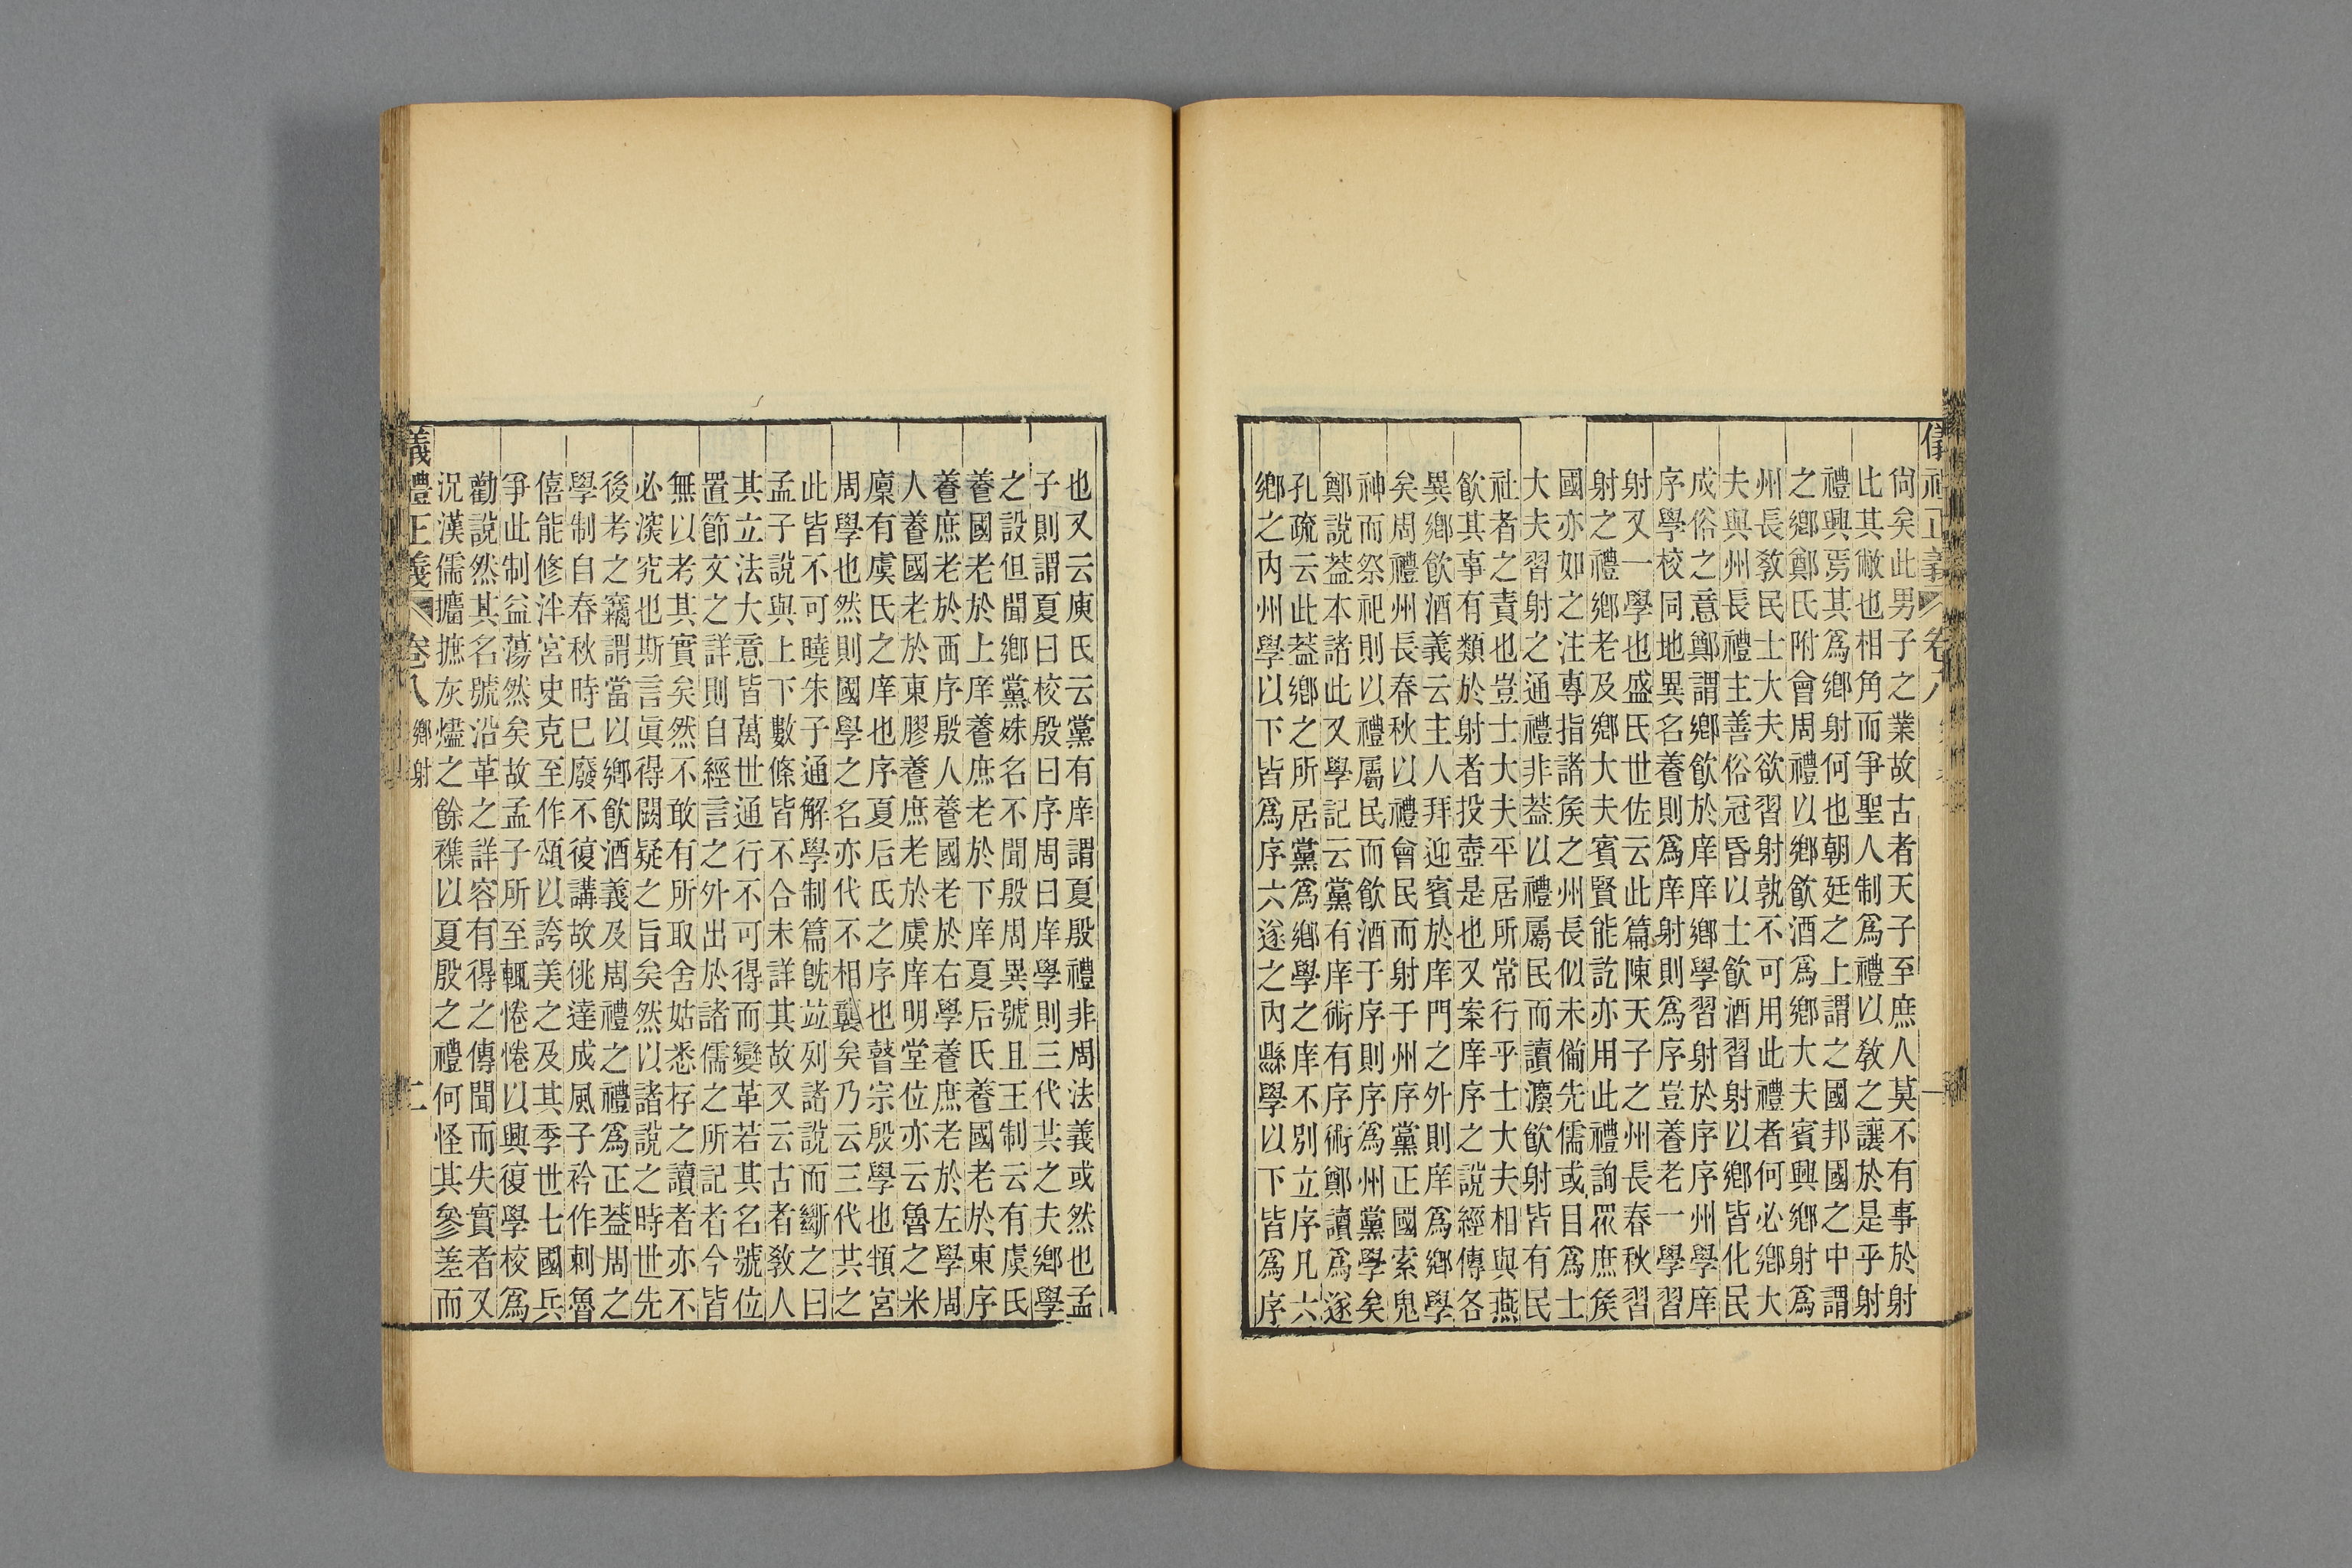 尙矣此男子之業故古者天子至庶人莫不有事於射
比其敝也相角而爭聖人制爲禮以敎之讓於是乎射
禮興焉其爲鄕射何也朝廷之上謂之國邦國之中謂
之鄕鄭氏附會周禮以鄕飮酒爲鄕大夫賓興鄕射爲
州長敎民士大夫欲習射孰不可用此禮者何必鄕大
夫與州長禮主善俗冠昏以士飮酒習射以鄕皆化民
成俗之意鄭謂鄕飮於庠庠鄕學習射於序序州學庠
序學校同地異名養則爲庠射則爲序豈養老一學習
射又一學也盛氏世佐云此篇陳天子之州長春秋習
射之禮鄕老及鄕大夫賓賢能訖亦用此禮詢眾庶矦
國亦如之注專指諸矦之州長似未僃先儒或目爲士
大夫習射之通禮非葢以禮屬民而讀灋飮射皆有民
社者之責也豈士大夫平居所常行乎士大夫相與燕
飮其事有類於射者投壺是也又案庠序之說經傳各
異鄕飮酒義云主人拜迎賓於庠門之外則庠爲鄕學
矣周禮州長春秋以禮會民而射于州序黨正國索鬼
神而祭祀則以禮屬民而飮酒于序則序爲州黨學矣
鄭說葢本諸此又學記云黨有庠術有序術鄭讀爲遂
孔疏云此葢鄕之所居黨爲鄕學之庠不別立序凡六
鄕之內州學以下皆爲序六遂之內縣學以下皆爲序
也又云庾氏云黨有庠謂夏殷禮非周法義或然也孟
子則謂夏曰校殷曰序周曰庠學則三代共之夫鄕學
之設但聞鄕黨姝名不聞殷周異號且王制云有虞氏
養國老於上庠養庶老於下庠夏后氏養國老於東序
養庶老於西序殷人養國老於右學養庶老於左學周
人養國老於東膠養庶老於虞庠明堂位亦云魯之米
廩有虞氏之庠也序夏后氏之序也瞽宗殷學也頖宮
周學也然則國學之名亦代不相襲矣乃云三代共之
此皆不可曉朱子通解學制篇旣竝列諸說而斷之曰
孟子說與上下數條皆不合未詳其故又云古者敎人
其立法大意皆萬世通行不可得而變革若其名號位
置節文之詳則自經言之外出於諸儒之所記者今皆
無以考其實矣然不敢有所取舍姑悉存之讀者亦不
必深究也斯言眞得闕疑之旨矣然以諸說之時世先
後考之竊謂當以鄕飮酒義及周禮之禮爲正葢周之
學制自春秋時已廢不復講故佻達成風子衿作刺魯
僖能修泮宮史克至作頌以誇美之及其季世七國兵
爭此制益蕩然矣故孟子所至輒惓惓以興復學校爲
勸說然其名號沿革之詳容有得之傳聞而失實者又
況漢儒攟摭灰燼之餘襍以夏殷之禮何怪其參差而
義禮正義 卷八 鄕射 二